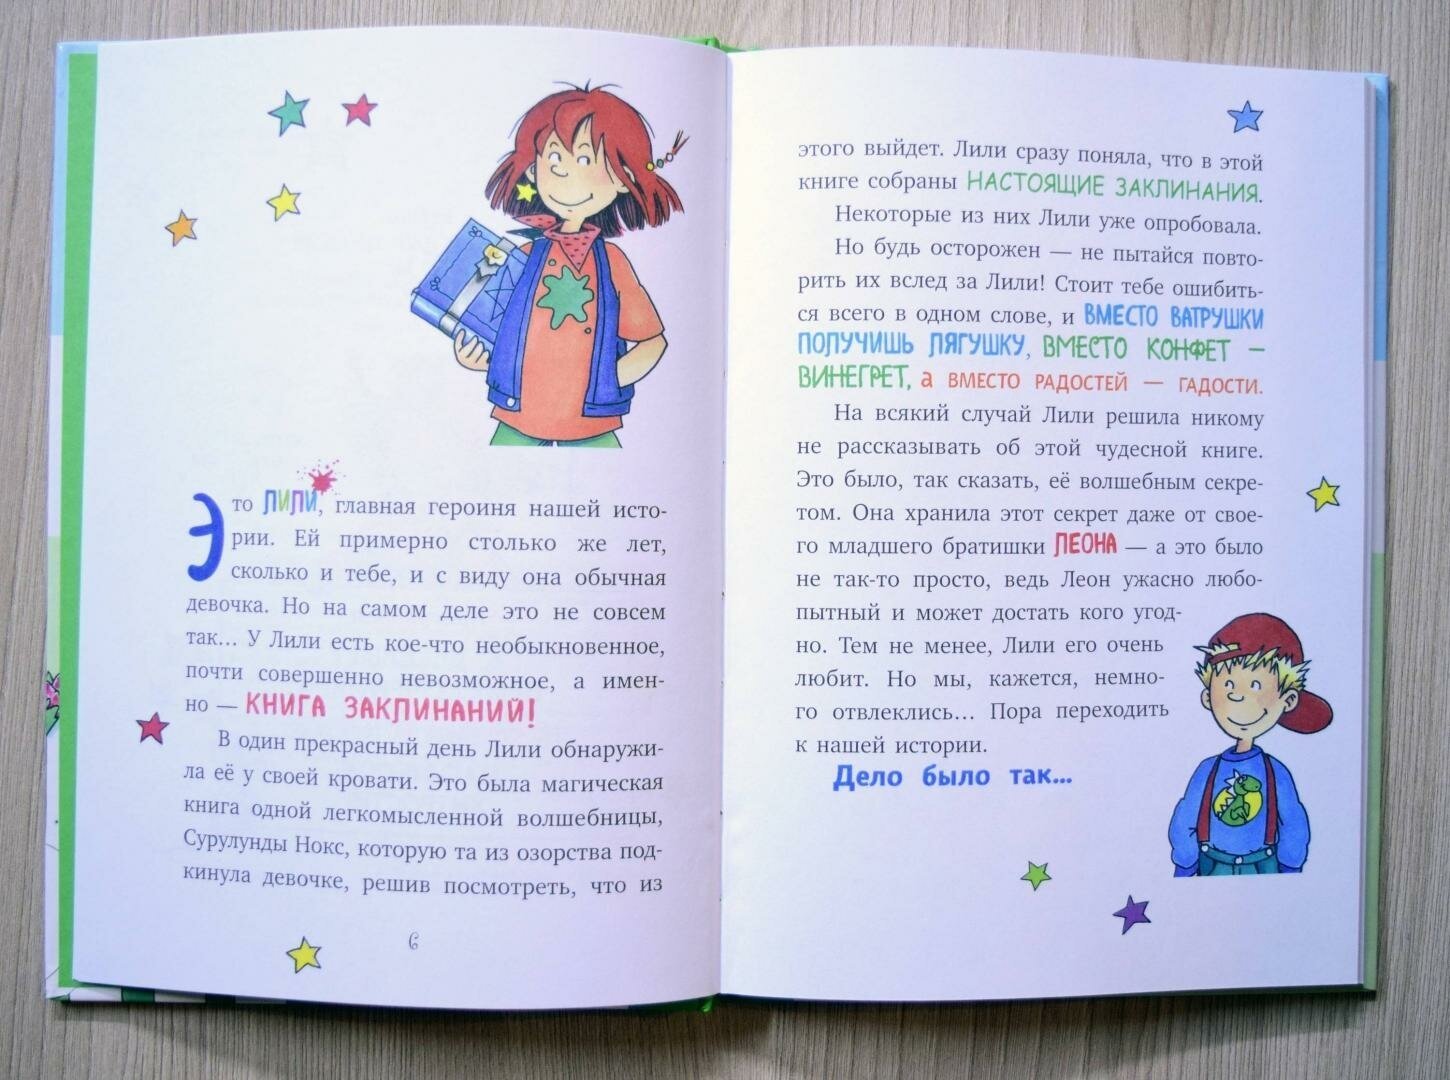 Это ЛИЛИ, главная героиня нашей исто-
рии. Ей примерно столько же лет,
сколько и тебе, и с виду она обычная
девочка. Но на самом деле это не совсем
так... У Лили есть кое-что необыкновенное,
почти совершенно невозможное, а имен-
но — КНИГА ЗАКЛИНАНИЙ!
В один прекрасный день Лили обнаружи-
ла её у своей кровати. Это была магическая
книга одной легкомысленной волшебницы,
Сурулунды Нокс, которую та из озорства под-
кинула девочке, решив посмотреть, что из
6
этого выйдет. Лили сразу поняла, что в этой
книге собраны НАСТОЯЩИЕ ЗАКЛИНАНИЯ.
Некоторые из них Лили уже опробовала.
Но будь осторожен — не пытайся повто-
рить их вслед за Лили! Стоит тебе ошибить-
ся всего в одном слове, и ВМЕСТО ВАТРУШКИ
ПОЛУЧИШЬ ЛЯГУШКУ, ВМЕСТО КОНФЕТ —
ВИНЕГРЕТ, а ВМЕСТО РАДОСТЕЙ — ГАДОСТИ.
На всякий случай Лили решила никому
не рассказывать об этой чудесной книге.
Это было, так сказать, её волшебным секре-
том. Она хранила этот секрет даже от свое-
го младшего братишки ЛЕОНА — а это было
не так-то просто, ведь Леон ужасно любо-
пытный и может достать кого угод-
но. Тем не менее, Лили его очень
любит. Но мы, кажется, немно-
го отвлеклись... Пора переходить
к нашей истории.
Дело было так...